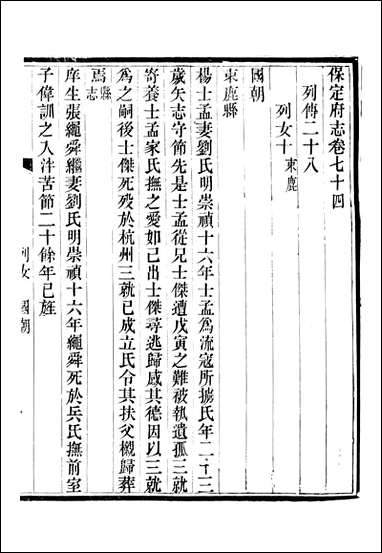 保定府志卷七十四
列傳二十八
列女十束鹿
國朝
束鹿縣
楊士孟妻劉氏明崇禎十六年士孟爲流寇所擄氏年二十三
歲矢志守節先是士孟從兄士傑遭戊寅之難被執遺孤三就
寄養士孟家氏撫之愛如己出士傑尋逃歸感其德因以三就
為之嗣後士傑死歿於杭州三就已成立氏令其扶父櫬歸葬
焉縣志
庠生張繩舜繼妻劉氏明崇禎十六年繩舜死於兵氏撫前室
子偉訓之入泮苦節二十餘年已旌
列女 國朝